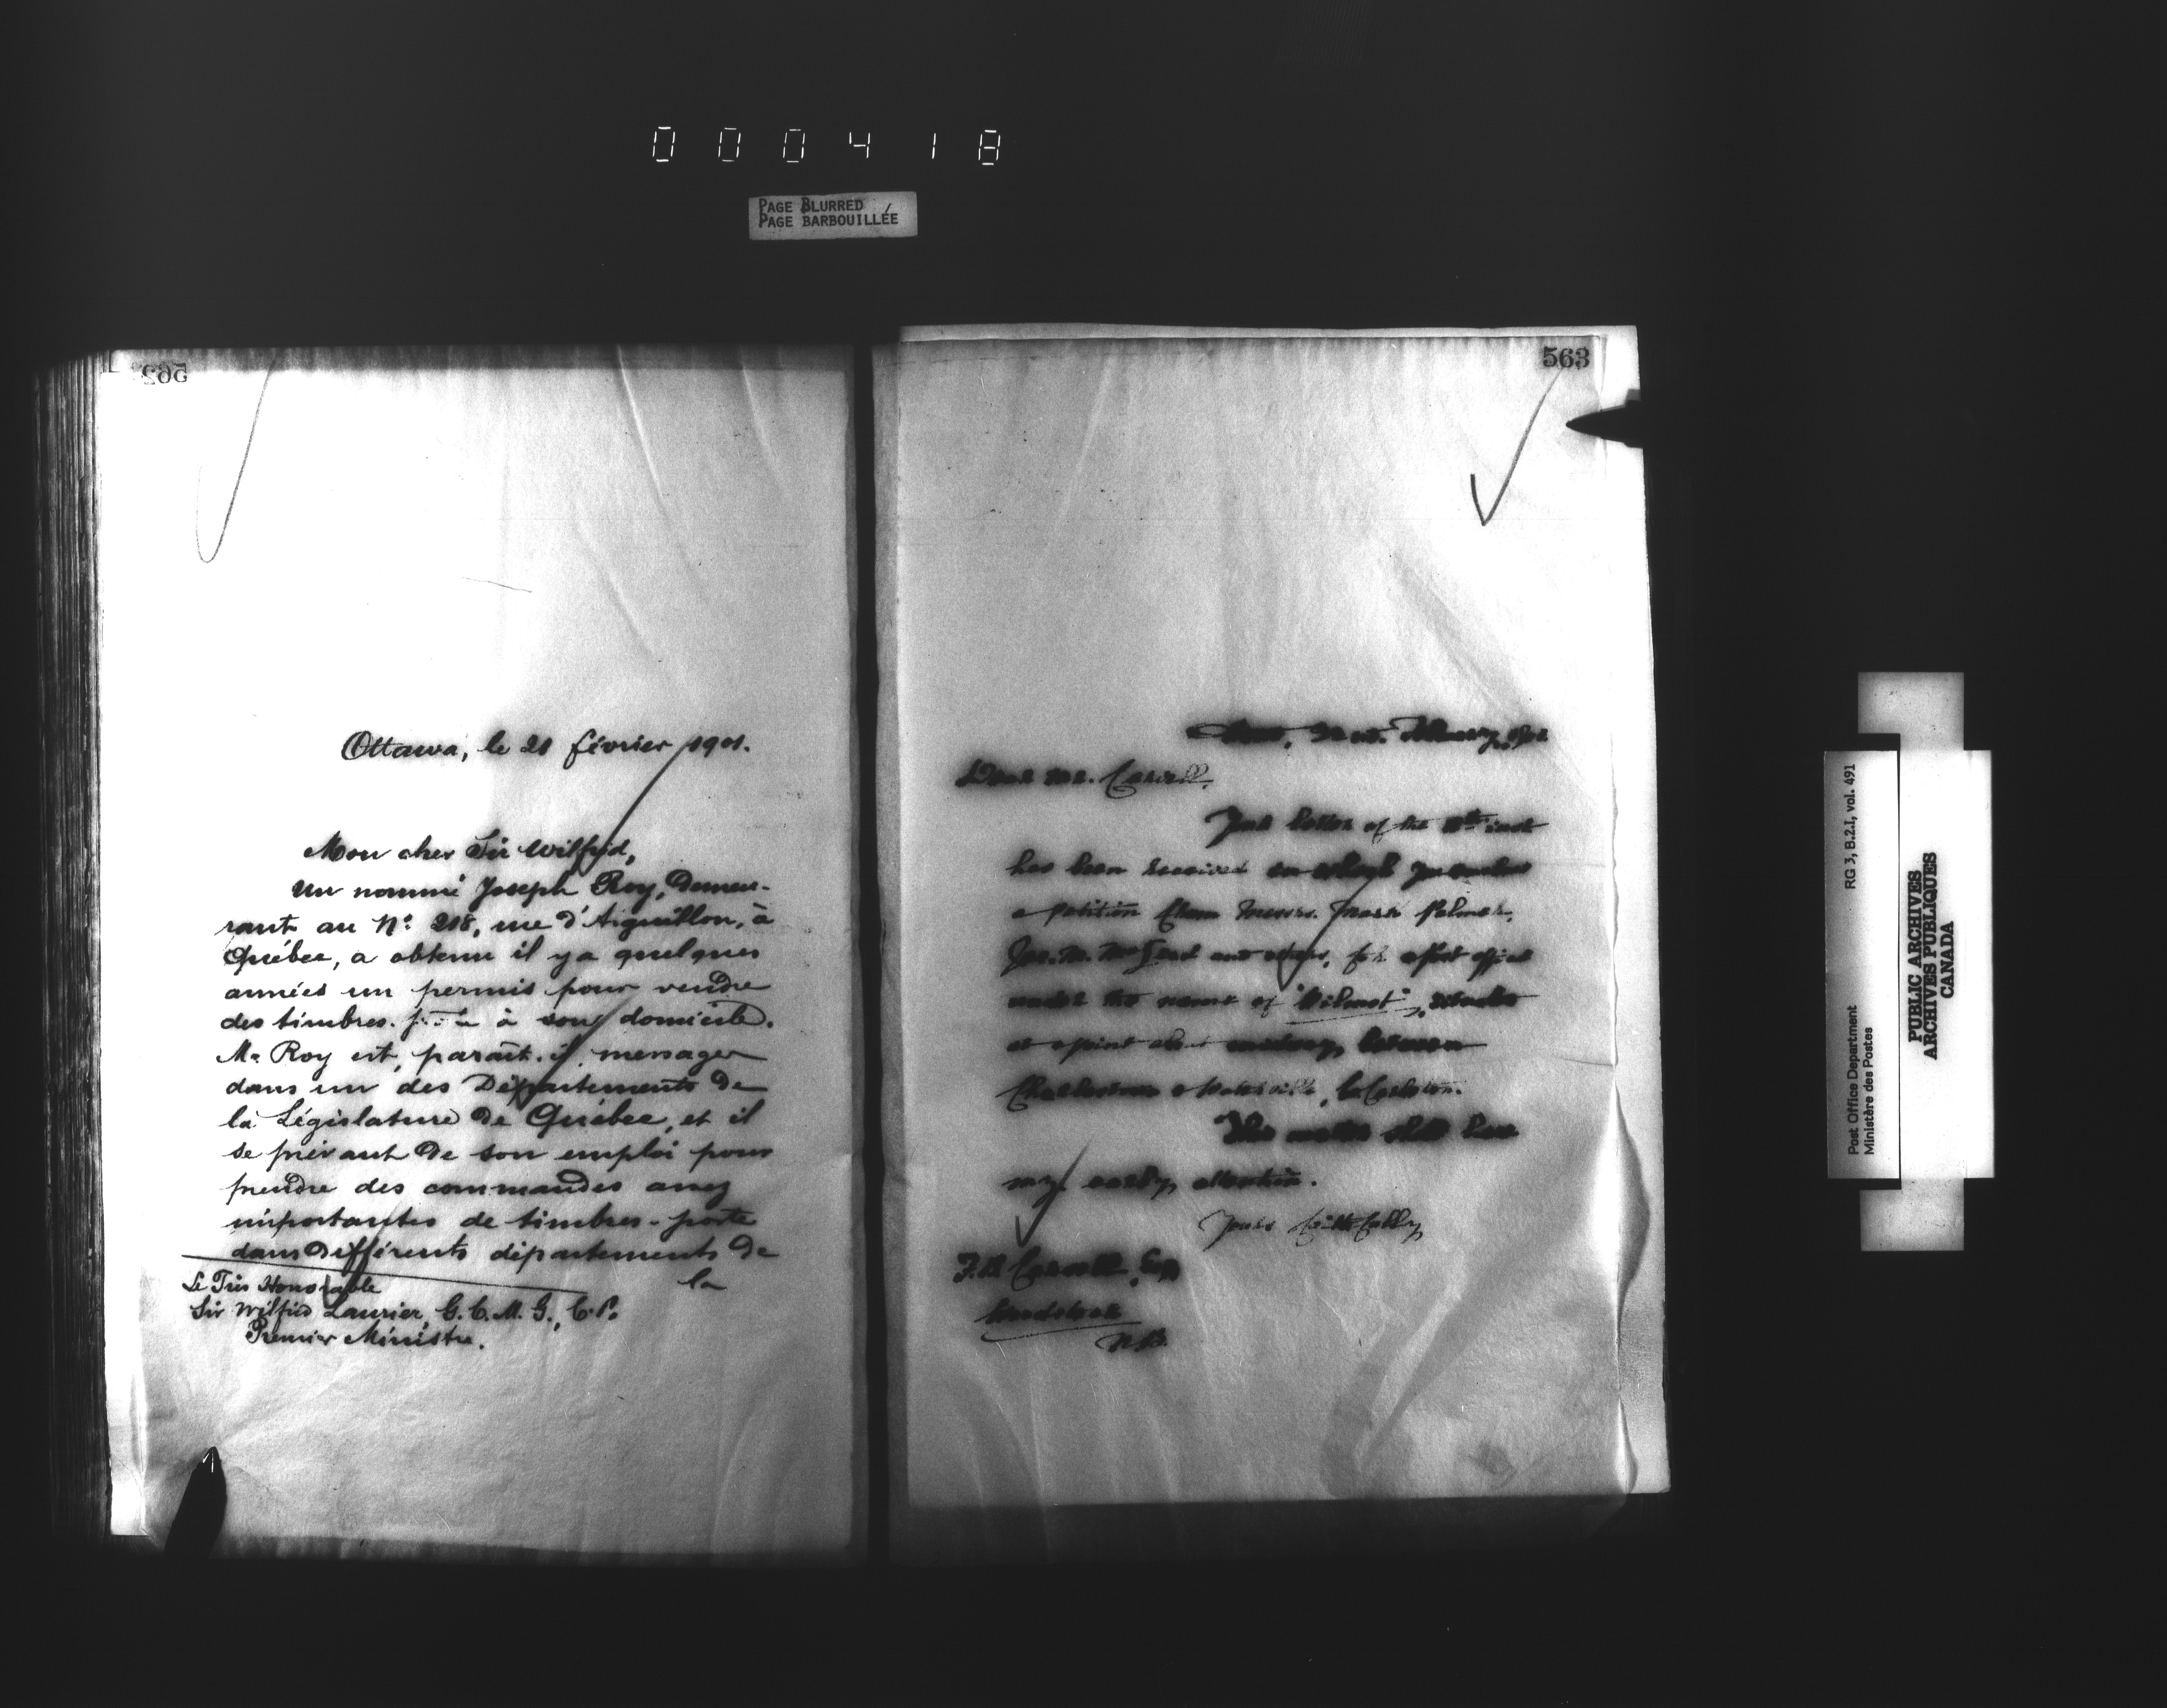 000418
PAGE BLURRED
PAGE BARBOUILLÉE
Ottawa, le 21 février 1901.
Mon cher Sir Wilfrid,
Un nommé Joseph Roy, demeu-
rant au No. 218, rue d'Aiguillon, à
Québec, a obtenu il y a quelques
années un permis pour vendre
des timbres- à son domicile.
Mr Roy est, paraît-il, messager
dans un des Départements de
la Législature de Québec, et il
se prévaut de son emploi pour
prendre des commandes assez
importantes de timbres-poste
dans différents départements de
la
Le Très Honorable
Sir Wilfrid Laurier, G.C.M.G., C.P.
Premier Ministre.
563
February,
Dear Mr. Carvell,
Your letter of the inst
has been received in which you enclose
a petition from Messrs. Palmer,
and others, for a Post Office
under the name of "Wilmot", situate
at a point about midway between
Charleston & Waterville, Co Carleton.
This matter shall have
my early attention.
Yours faithfully
F.B Carvell, Esq
Woodstock
N.B.
Post Office Department
Ministère des Postes
RG 3, B.2.I, vol. 491
PUBLIC ARCHIVES
ARCHIVES PUBLIQUES
CANADA